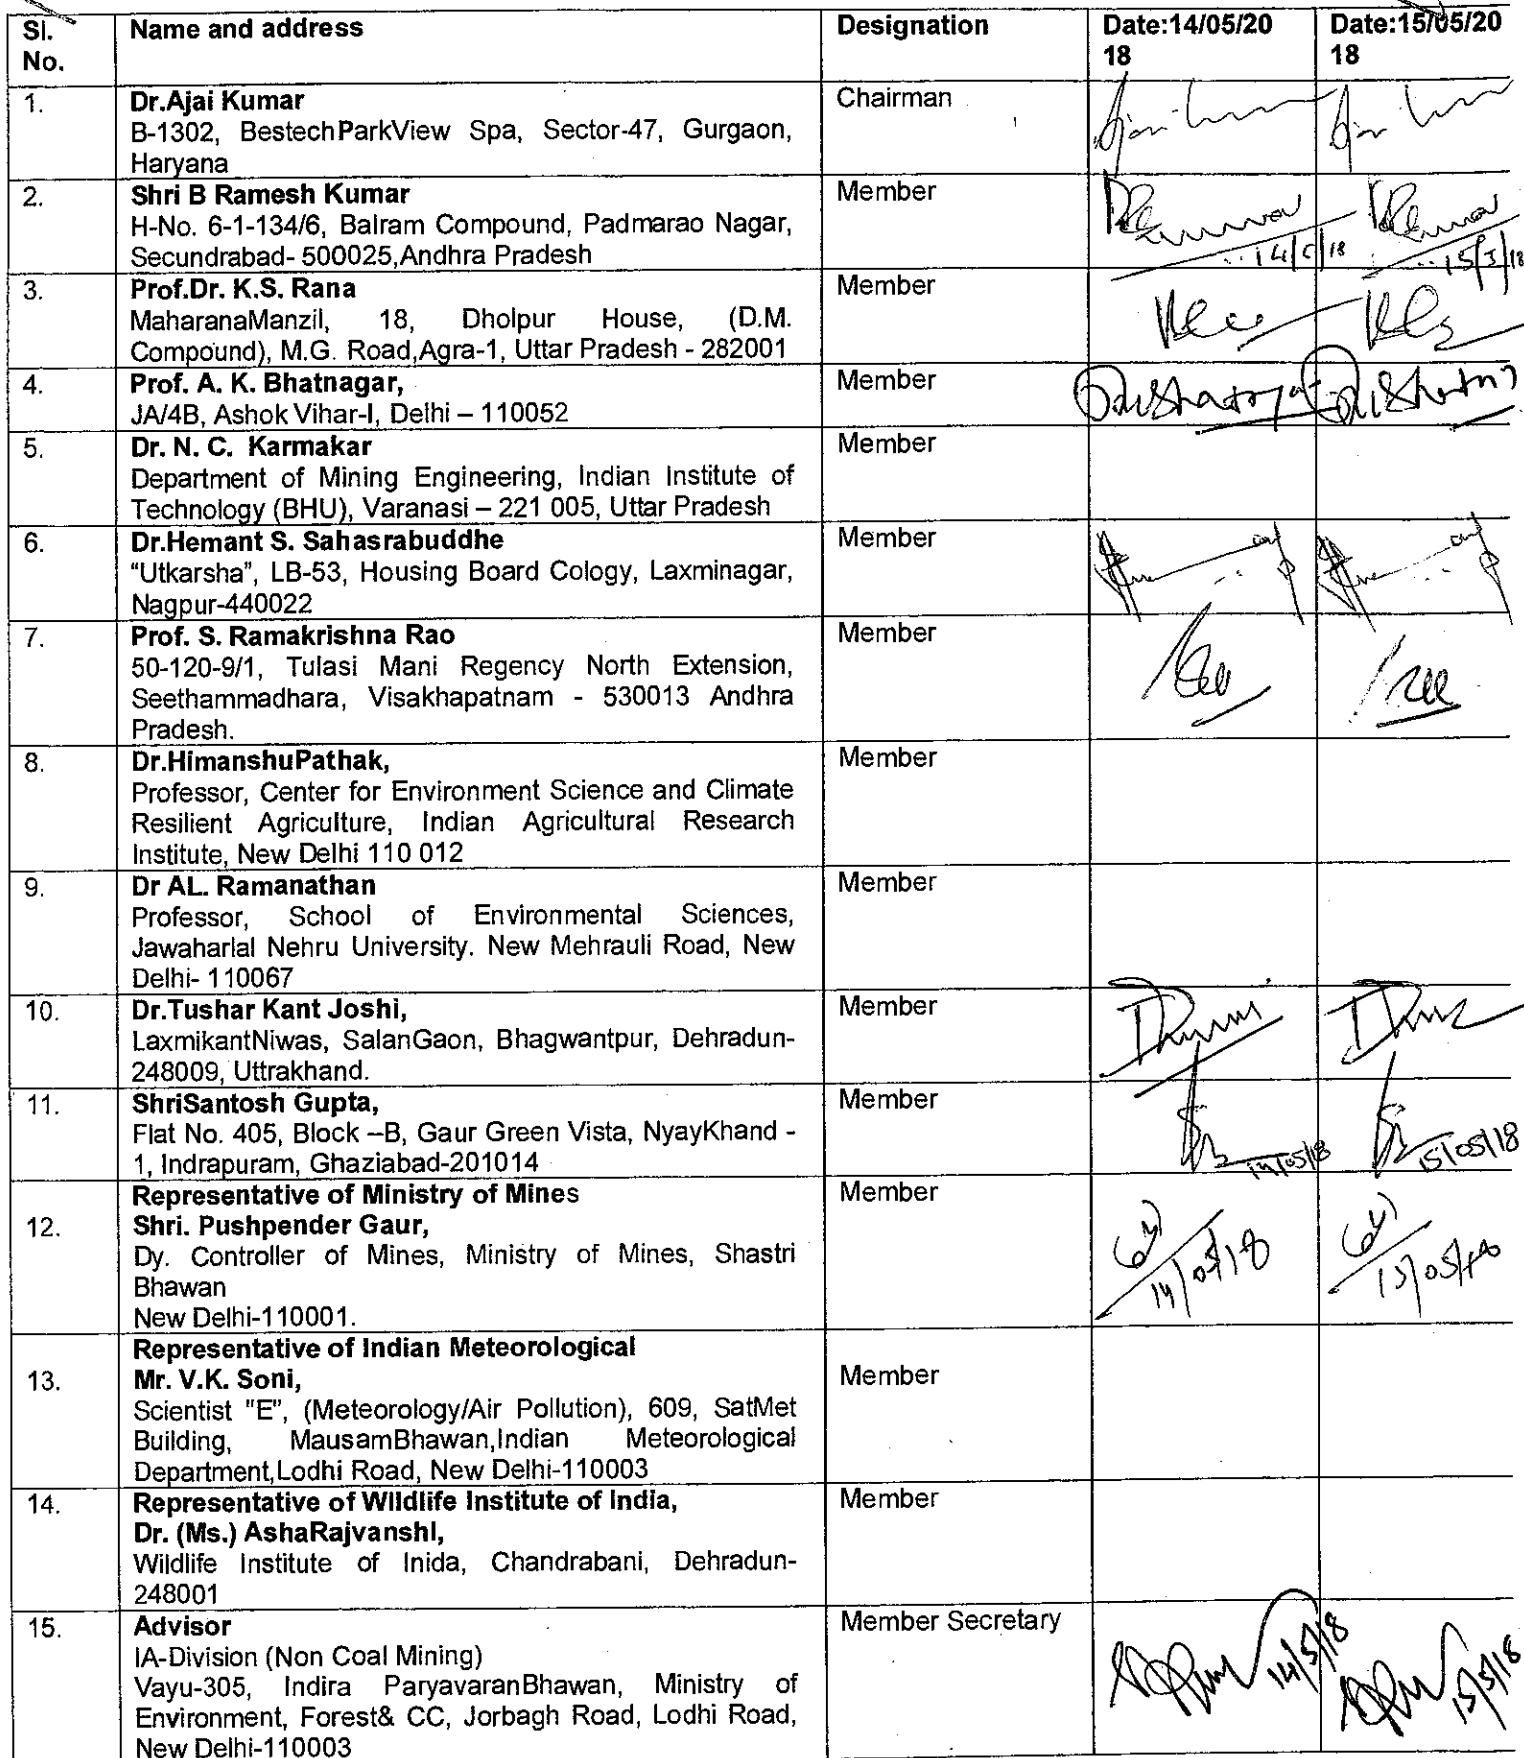 Sl. Name and address Designation Date:14/05/20 Date:15/05/20
No. 18 18
1. Dr.Ajai Kumar Chairman
B-1302, BestechParkView Spa, Sector-47, Gurgaon,
Haryana
2. Shri B Ramesh Kumar Member
H-No. 6-1-134/6, Balram Compound, Padmarao Nagar,
Secundrabad- 500025,Andhra Pradesh 15/5/18
3. Prof.Dr. K.S. Rana Member
MaharanaManzil, 18, Dholpur House, (D.M.
Compound), M.G. Road,Agra-1, Uttar Pradesh - 282001
4. Prof. A. K. Bhatnagar, Member
JA/4B, Ashok Vihar-I, Delhi – 110052
5. Dr. N. C. Karmakar Member
Department of Mining Engineering, Indian Institute of
Technology (BHU), Varanasi – 221 005, Uttar Pradesh
6. Dr.Hemant S. Sahasrabuddhe Member
"Utkarsha", LB-53, Housing Board Cology, Laxminagar,
Nagpur-440022
7. Prof. S. Ramakrishna Rao Member
50-120-9/1, Tulasi Mani Regency North Extension,
Seethammadhara, Visakhapatnam - 530013 Andhra
Pradesh.
8. Dr.HimanshuPathak, Member
Professor, Center for Environment Science and Climate
Resilient Agriculture, Indian Agricultural Research
Institute, New Delhi 110 012
9. Dr AL. Ramanathan Member
Professor, School of Environmental Sciences,
Jawaharlal Nehru University. New Mehrauli Road, New
Delhi- 110067
10. Dr.Tushar Kant Joshi, Member
LaxmikantNiwas, SalanGaon, Bhagwantpur, Dehradun-
248009, Uttrakhand.
11. ShriSantosh Gupta, Member
Flat No. 405, Block –B, Gaur Green Vista, NyayKhand -
1, Indrapuram, Ghaziabad-201014 14/05/18 15/05/18
Representative of Ministry of Mines Member
12. Shri. Pushpender Gaur,
Dy. Controller of Mines, Ministry of Mines, Shastri
Bhawan 14/05/18 15/05/18
New Delhi-110001.
Representative of Indian Meteorological
13. Mr. V.K. Soni, Member
Scientist "E", (Meteorology/Air Pollution), 609, SatMet
Building, MausamBhawan,Indian Meteorological
Department,Lodhi Road, New Delhi-110003
14. Representative of Wildlife Institute of India, Member
Dr. (Ms.) AshaRajvanshI,
Wildlife Institute of Inida, Chandrabani, Dehradun-
248001
15. Advisor Member Secretary
IA-Division (Non Coal Mining) 14/5/18 15/5/18
Vayu-305, Indira ParyavaranBhawan, Ministry of
Environment, Forest& CC, Jorbagh Road, Lodhi Road,
New Delhi-110003